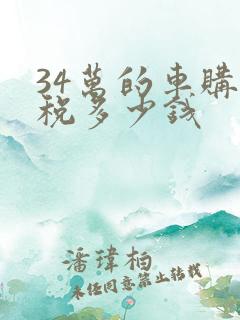 34萬的車購
稅多少錢
潘瑋柏
未经同意禁止转载